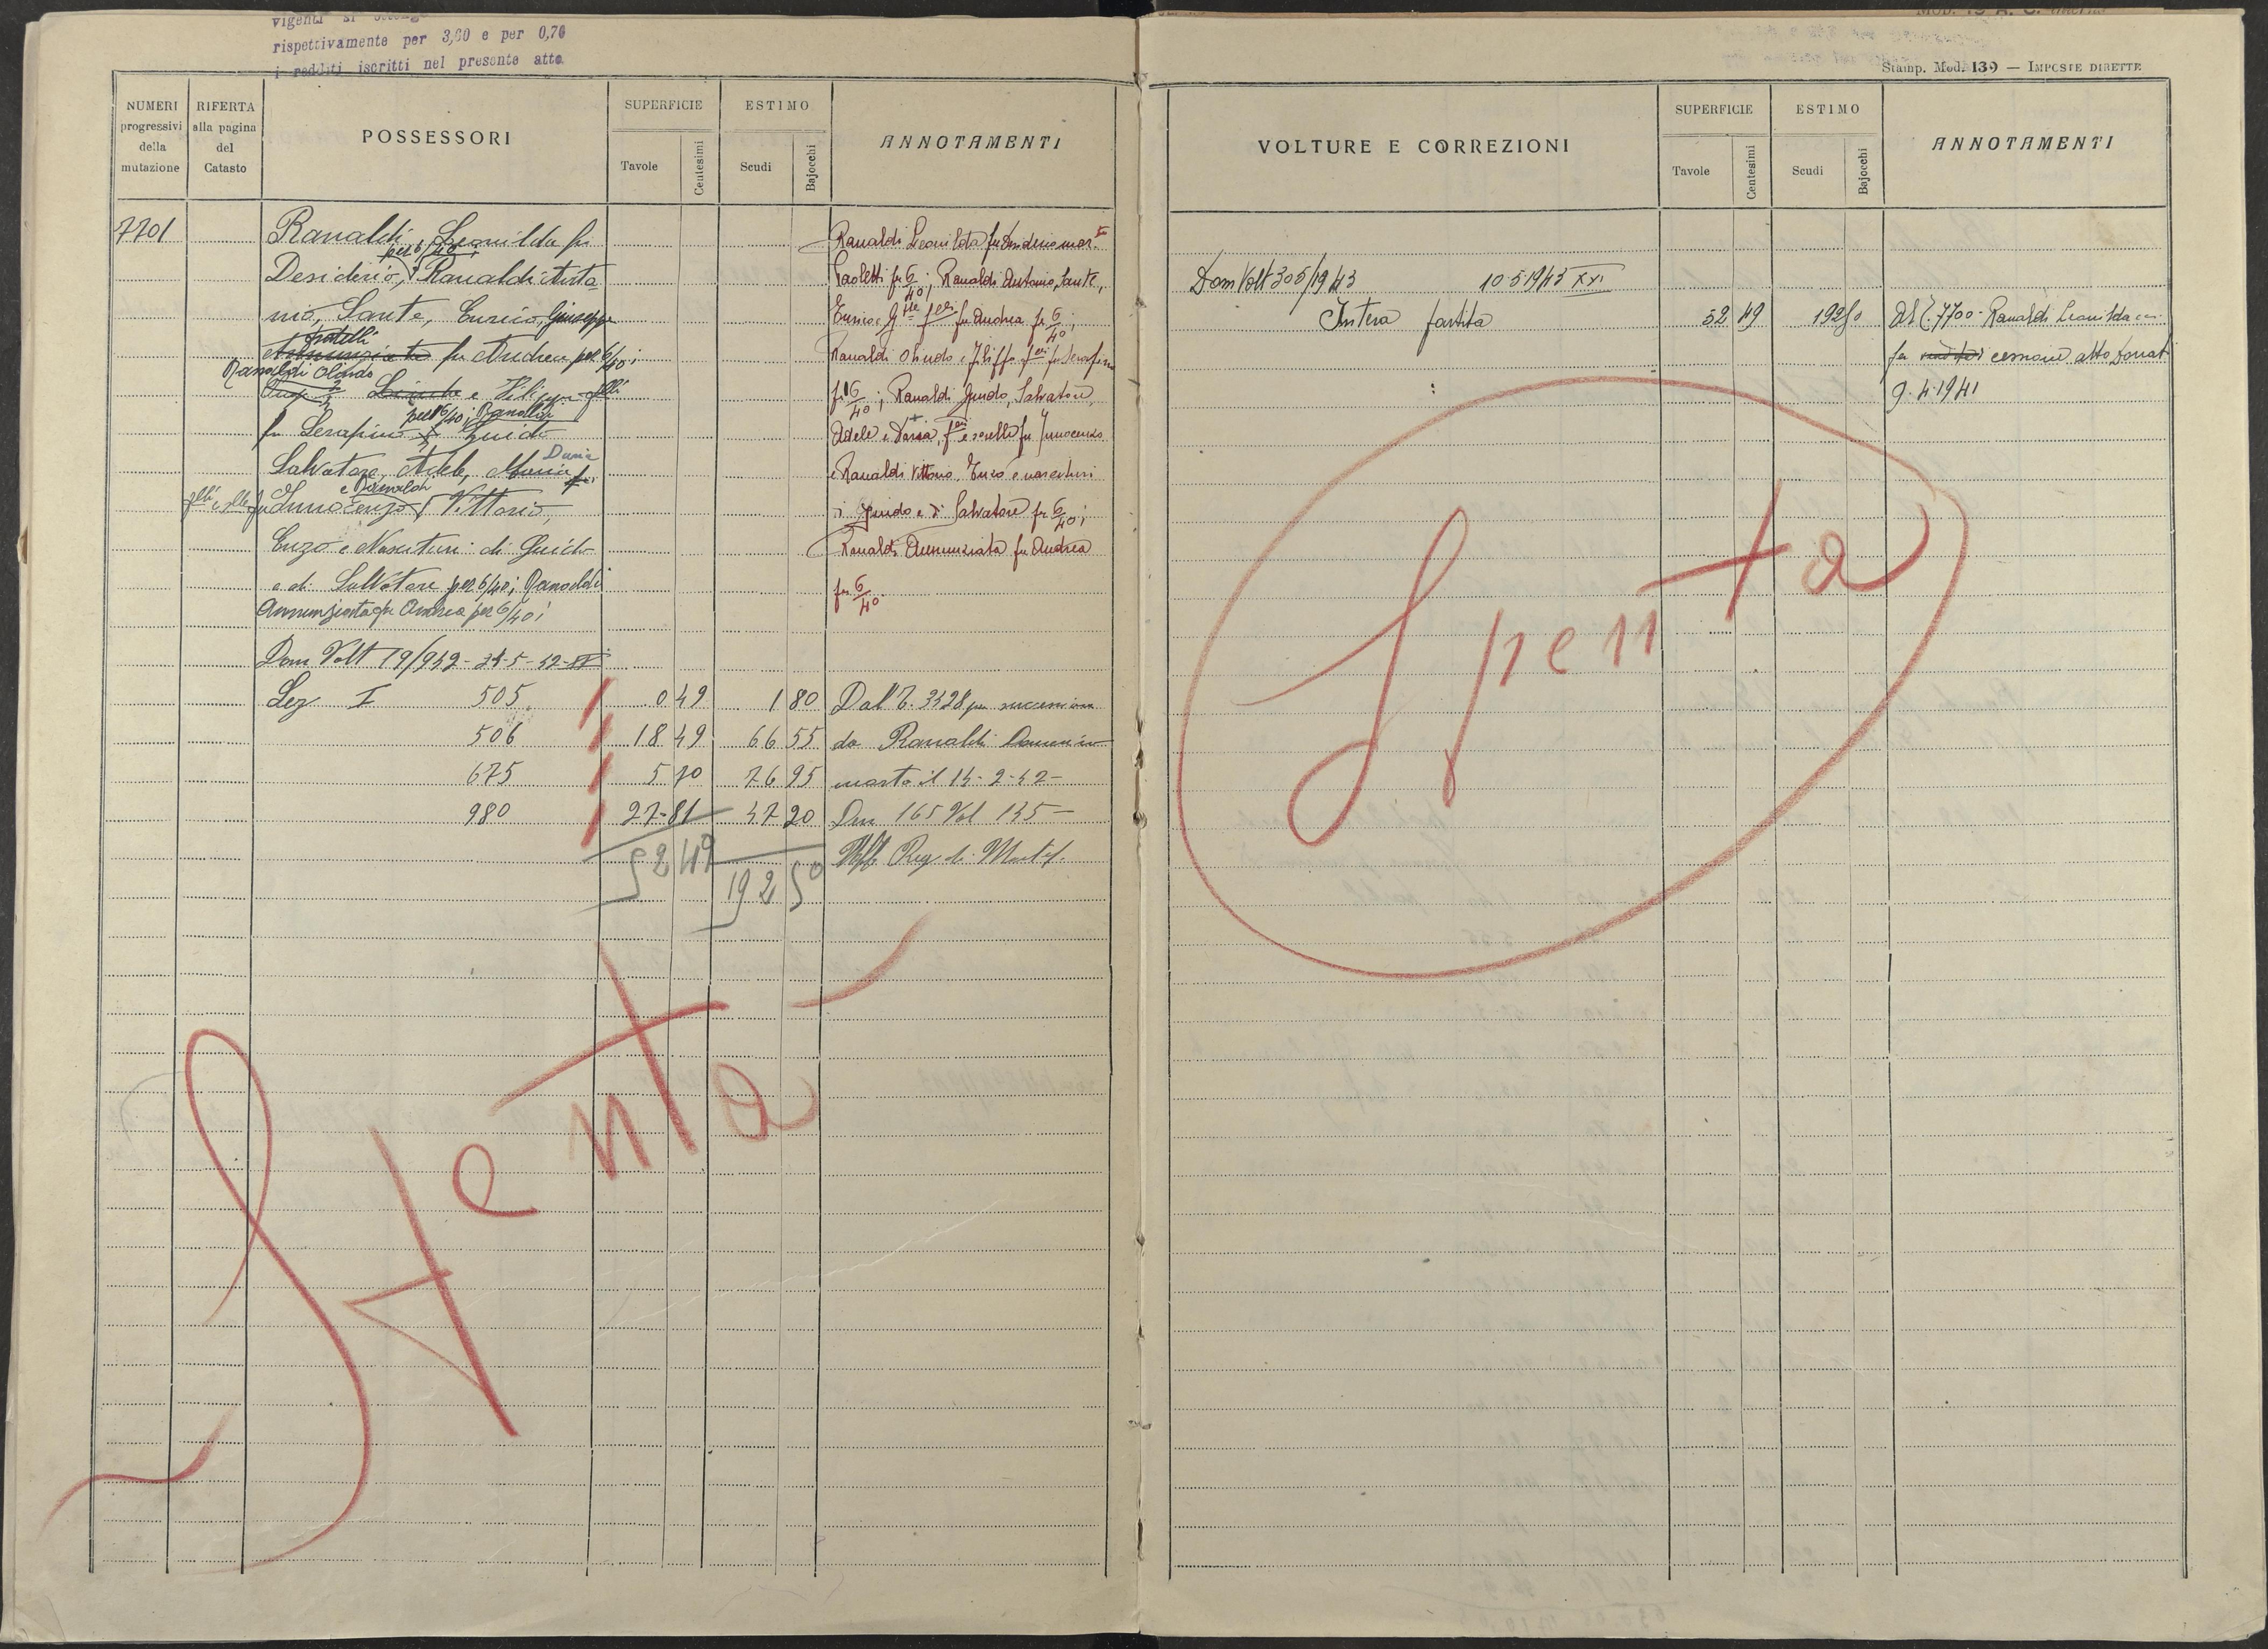 rispettivamente per 3,60 e per 0,76
i redditi iscritti nel presente atto
NUMERI progressivi della mutazione
RIFERTA alla pagina del Catasto
POSSESSORI
SUPERFICIE
Tavole
Centesimi
ESTIMO
Scudi
Bajocchi
ANNOTAMENTI
7701
Ranaldi Leonilda fu
per 16/40;
Desiderio, Ranaldi Anto-
nio, Sante, Enrico, Giuseppe
fratelli
Annunziata fu Andrea per 6/40;
Ranaldi Olindo
e Filippo flli
per 16/40; Ranaldi
fu Serafino Guido
Daria
Salvatore, Adele, Maria fu
e Ranaldi
flli e slle fu Innocenzo Vittorio,
Enzo e Nascituri di Guido
e di Salvatore per 6/40; Ranaldi
Annunziata fu Andrea per 6/40;
Dom Volt 19/942 - 24-5-42-XX
Sez I 505 0 49 1 80 Dal T. 3428 per successione
506 18 49 66 55 da Ranaldi Domenico
675 5 70 76 95 morto il 14-2-42-
980 27-81 47 20 Den 165 Vol 145-
52 49 192 50 Uff Reg. di
Ranaldi Leonilda fu Desiderio mar.
Paoletti per 16/40; Ranaldi Antonio, Sante,
Enrico e Gppe flli fu Andrea per 6/40;
Ranaldi Olindo e Filippo flli fu Serafino
per 16/40; Ranaldi Guido, Salvatore,
Adele e Daria, flli e sorelle fu Innocenzo
e Ranaldi Vittorio, Enzo e nascituri
di Guido e di Salvatore per 6/40;
Ranaldi Annunziata fu Andrea
per 6/40.
Spenta
Stamp. Mod. 139 — IMPOSTE DIRETTE
VOLTURE E CORREZIONI
SUPERFICIE
Tavole
Centesimi
ESTIMO
Scudi
Bajocchi
ANNOTAMENTI
Dom Volt 305/1943 10-5-1943 XXI
Intera partita 52 49 192 50 Al T. 7700 - Ranaldi Leonilda
per cessione atto Donati
9-4-1941
Spenta